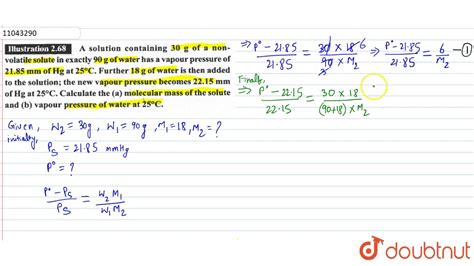 11043290
Illustration 2.68 A solution containing 30 g of a non-
volatile solute in exactly 90 g of water has a vapour pressure of
21.85 mm of Hg at 25°C. Further 18 g of water is then added
to the solution; the new vapour pressure becomes 22.15 mm
of Hg at 25°C. Calculate the (a) molecular mass of the solute
and (b) vapour pressure of water at 25°C.
Given, W₂ = 30g, W₁ = 90g, M₁ = 18, M₂ = ?
initially,
Pₛ = 21.85 mmHg
P° = ?
P° - Pₛ / Pₛ = W₂ M₁ / W₁ M₂
⇒ P° - 21.85 / 21.85 = 30 × 18 6 / 90 × M₂ ⇒ P° - 21.85 / 21.85 = 6 / M₂ - ①
Finally,
⇒ P° - 22.15 / 22.15 = 30 × 18 / (90+18) × M₂
doubtnut